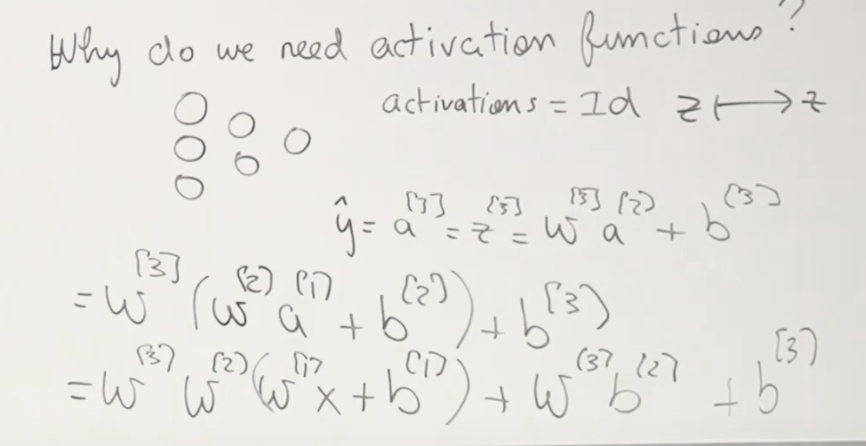 Why do we need activation functions?
activations = Id z ⟼ z
ŷ = a^[3] = z^[3] = w^[3] a^[2] + b^[3]
= w^[3] (w^[2] a^[1] + b^[2]) + b^[3]
= w^[3] w^[2] (w^[1] x + b^[1]) + w^[3] b^[2] + b^[3]